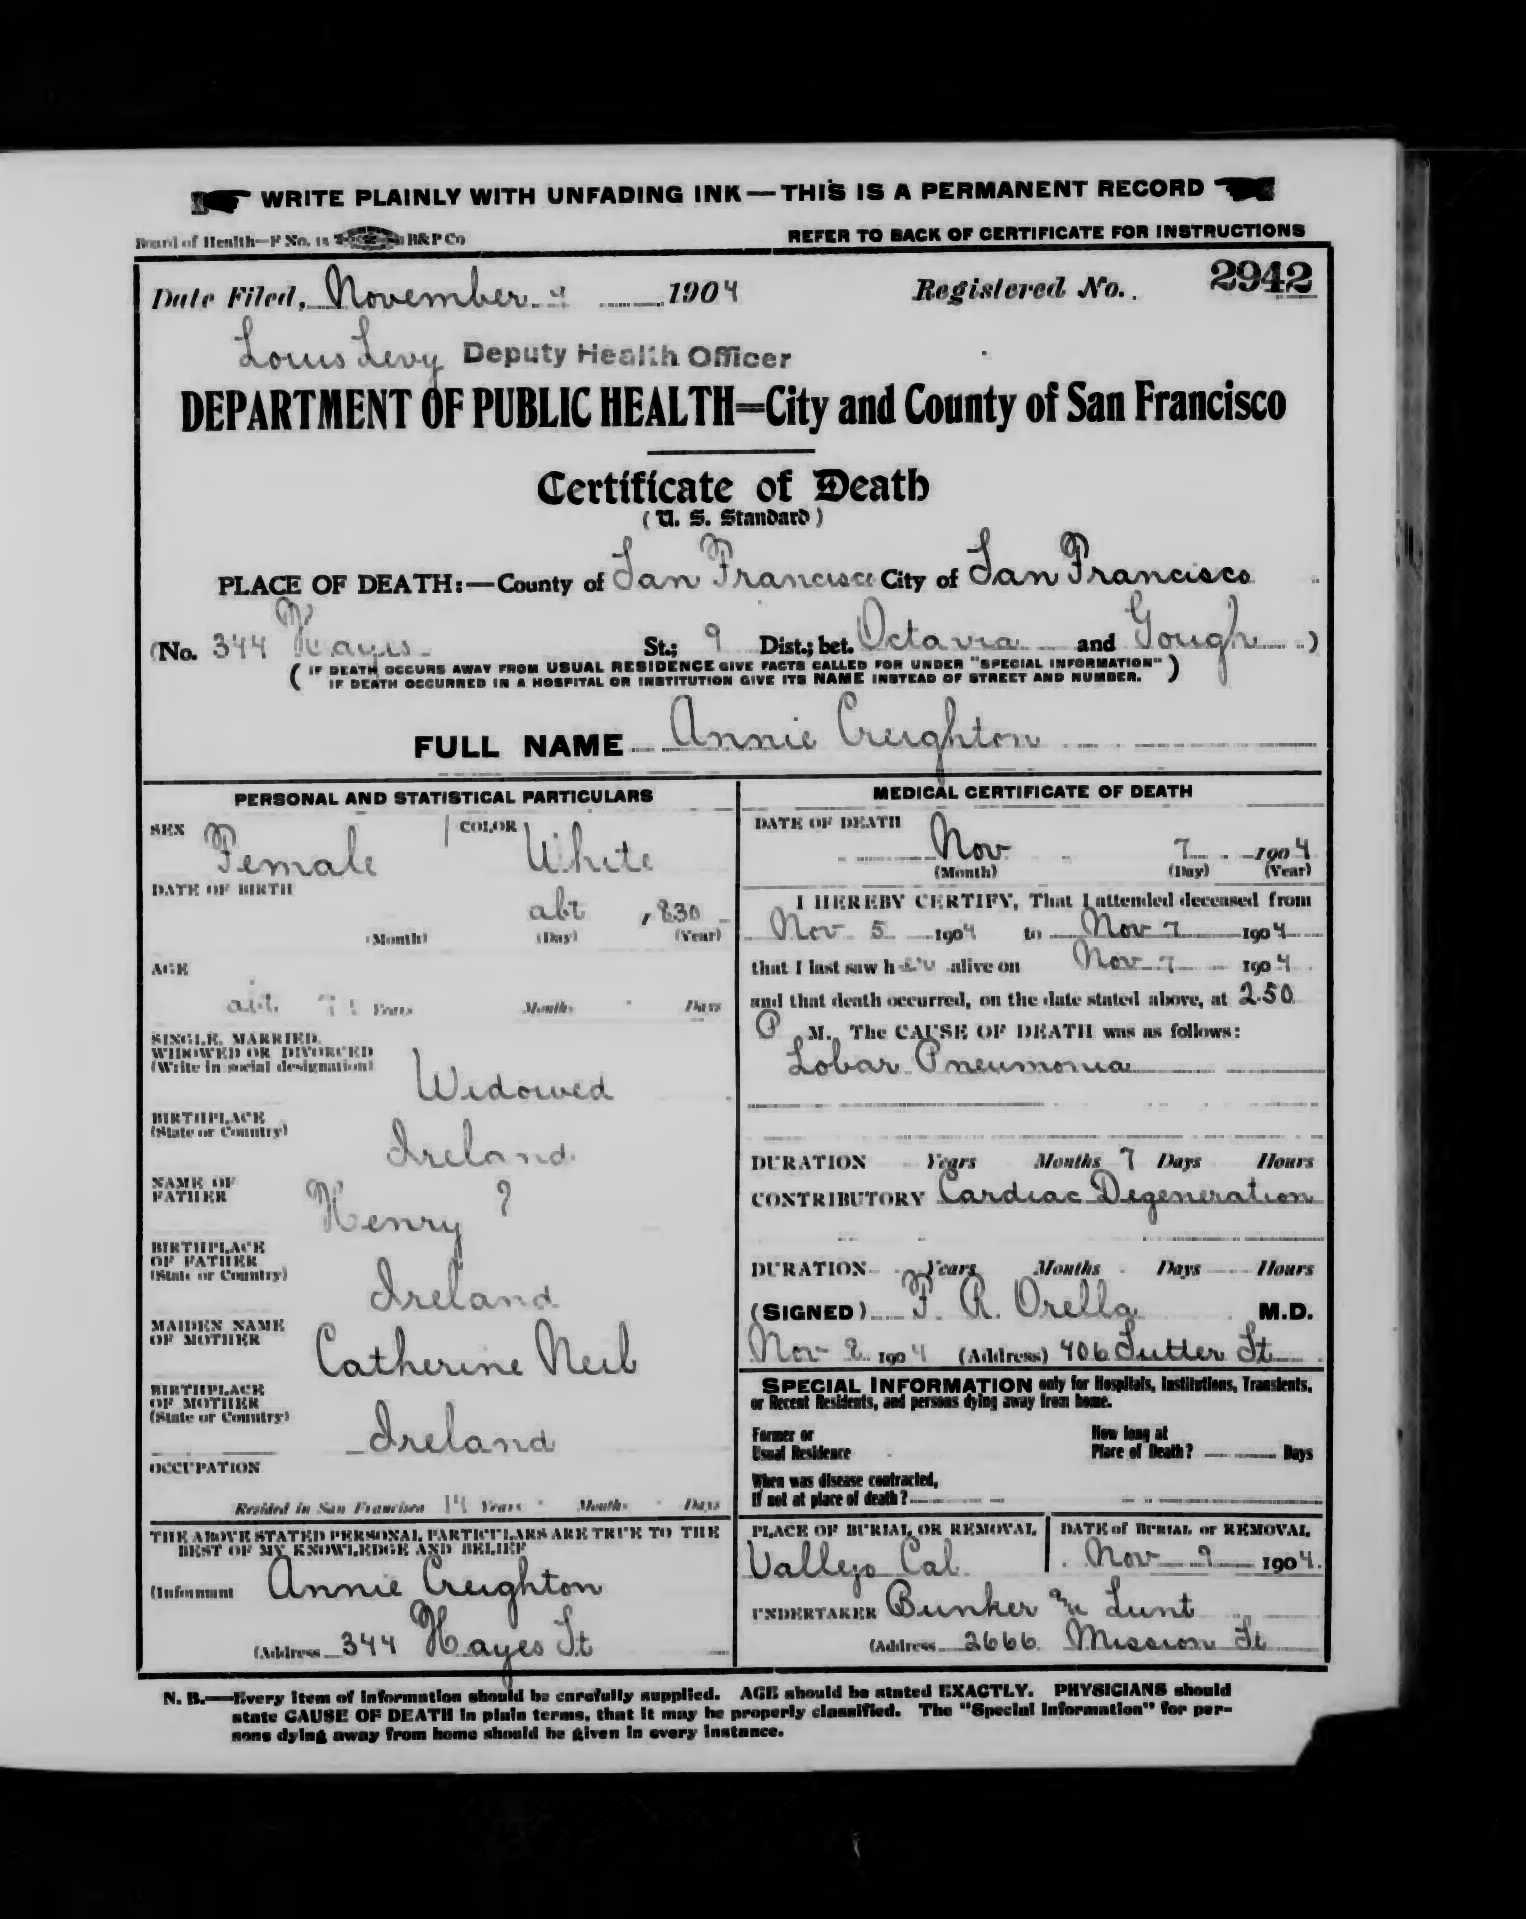 WRITE PLAINLY WITH UNFADING INK — THIS IS A PERMANENT RECORD
Board of Health—F No. 15 B&P Co
REFER TO BACK OF CERTIFICATE FOR INSTRUCTIONS
Date Filed, November 1904 Registered No. 2942
Louis Levy Deputy Health Officer
DEPARTMENT OF PUBLIC HEALTH=City and County of San Francisco
Certificate of Death
(U. S. Standard)
PLACE OF DEATH:—County of San Francisco City of San Francisco
(No. 344 Hayes St.; 9 Dist.; bet. Octavia and Gough )
( IF DEATH OCCURS AWAY FROM USUAL RESIDENCE GIVE FACTS CALLED FOR UNDER "SPECIAL INFORMATION" )
IF DEATH OCCURRED IN A HOSPITAL OR INSTITUTION GIVE ITS NAME INSTEAD OF STREET AND NUMBER.
FULL NAME Annie Creighton
PERSONAL AND STATISTICAL PARTICULARS
SEX Female COLOR White
DATE OF BIRTH
abt 1830
(Month) (Day) (Year)
AGE
abt. Years Months Days
SINGLE, MARRIED,
WIDOWED OR DIVORCED
(Write in social designation)
Widowed
BIRTHPLACE
(State or Country)
Ireland
NAME OF
FATHER
Henry ?
BIRTHPLACE
OF FATHER
(State or Country)
Ireland
MAIDEN NAME
OF MOTHER
Catherine Neil
BIRTHPLACE
OF MOTHER
(State or Country)
Ireland
OCCUPATION
Resided in San Francisco Years Months Days
THE ABOVE STATED PERSONAL PARTICULARS ARE TRUE TO THE
BEST OF MY KNOWLEDGE AND BELIEF
(Informant Annie Creighton
(Address 344 Hayes St
MEDICAL CERTIFICATE OF DEATH
DATE OF DEATH
Nov 7 1904
(Month) (Day) (Year)
I HEREBY CERTIFY, That I attended deceased from
Nov 5 1904 to Nov 7 1904
that I last saw her alive on Nov 7 1904
and that death occurred, on the date stated above, at 2.50
P M. The CAUSE OF DEATH was as follows:
Lobar Pneumonia
DURATION Years Months 7 Days Hours
CONTRIBUTORY Cardiac Degeneration
DURATION Years Months Days Hours
(SIGNED) F. R. Orella M.D.
Nov 8 1904 (Address) 406 Sutter St
SPECIAL INFORMATION only for Hospitals, Institutions, Transients,
or Recent Residents, and persons dying away from home.
Former or
Usual Residence
How long at
Place of Death? Days
When was disease contracted,
If not at place of death?
PLACE OF BURIAL OR REMOVAL
Vallejo Cal.
DATE of BURIAL or REMOVAL
Nov 9 1904.
UNDERTAKER Bunker & Lunt
(Address 2666 Mission St
N. B.—Every item of information should be carefully supplied. AGE should be stated EXACTLY. PHYSICIANS should
state CAUSE OF DEATH in plain terms, that it may be properly classified. The "Special Information" for per-
sons dying away from home should be given in every instance.